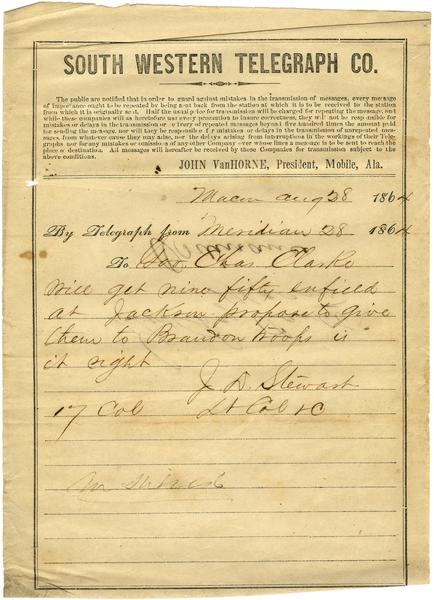 SOUTH WESTERN TELEGRAPH CO.
The public are notified that in order to guard against mistakes in the transmission of messages, every message
of importance ought to be repeated by being sent back from the station at which it is to be received to the station
from which it is originally sent. Half the usual price for transmission will be charged for repeating the message, and
while these companies will as heretofore use every precaution to insure correctness, they will not be responsible for
mistakes or delays in the transmission or delivery of repeated messages beyond five hundred times the amount paid
for sending the message, nor will they be responsible for mistakes or delays in the transmission of unrepeated messages,
from whatever cause they may arise, nor for delays arising from interruptions in the working of their Tele-
graphs nor for any mistakes or omissions of any other Company over whose lines a message is to be sent to reach the
place of destination. All messages will hereafter be received by these Companies for transmission subject to the
above conditions.
JOHN VanHORNE, President, Mobile, Ala.
Macon Aug 28 1864
By Telegraph from Meridian 28 1864
To Gov Chas Clarke
Will get nine fifty enfield
at Jackson propose to give
them to Brandon troops is
it right
J. D. Stewart
17 Col Lt Col &c